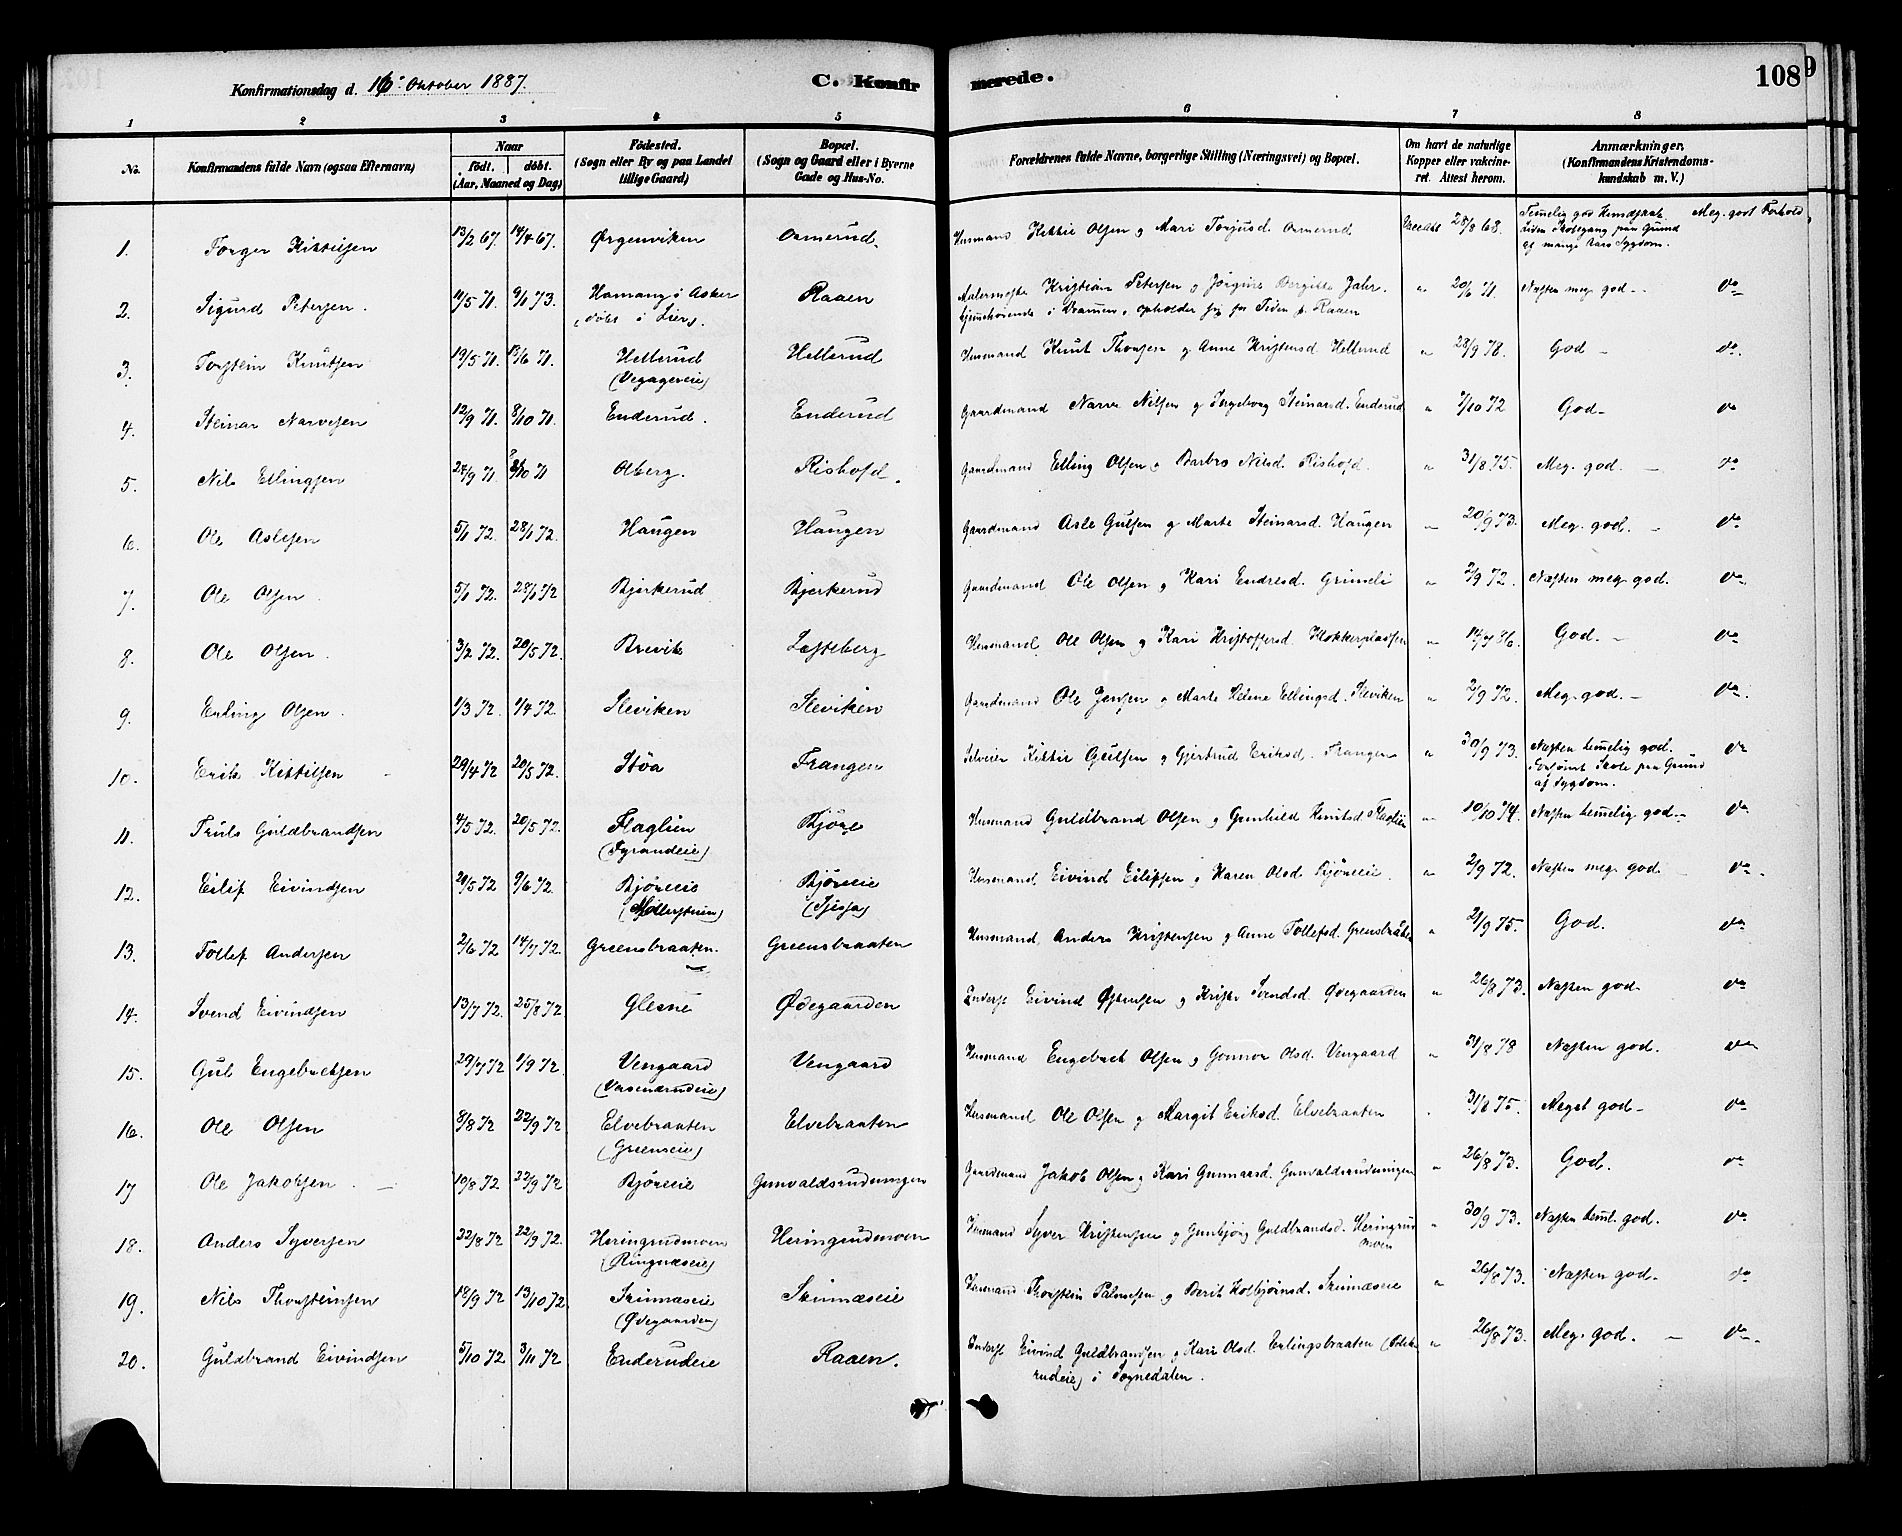 Konfirmationsdag d. 16de Oktober 1887.
C. Konfirmerede.
108
1 2 3 4 5 6 7 8
No.
Konfirmandens fulde Navn (ogsaa Efternavn)
Naar
födt. döbt.
(Aar, Maaned og Dag)
Födested.
(Sogn eller By og paa Landet
tillige Gaard)
Bopæl.
(Sogn og Gaard eller i Byerne
Gade og Hus-No.
Forældrenes fulde Navne, borgerlige Stilling (Næringsvei) og Bopæl.
Om havt de naturlige
Kopper eller vakcine-
ret. Attest herom.
Anmærkninger.
(Konfirmandens Kristendoms-
kundskab m. V.)
1. Torger Kittilsen 13/2 67. 14/4 67. Ørgenviken Ormerud Husmand Kittil Olsen og Mari Torjusd. Ormerud 28/8 68. Temmelig god Kundskab. Meg. godt Forhold
Liden Skolegang paa Grund
af mange Aars Sygdom.
2. Sigurd Petersen. 11/5 71. 9/1 73. Hamang i Asker Raaen Malermester Kristian Petersen og Jörgine Bergitte Jahr. " 20/6 71. Næsten meg god. - do
(döbt i Lier). hjemmehörende i Drammen, opholder sig for Tiden p. Raaen
3. Torstein Knutsen 19/5 71. 18/6 71. Hellerud Hellerud Husmand Knut Thorsen og Anne Kristensd. Hellerud " 28/9 78. God - do.
4. Steinar Narvesen 12/9 71. 8/10 71. Enderud. Enderud Gaardmand Narve Nilsen og Ingeborg Steinarsd. Enderud " 7/10 72 God - do
5. Nils Ellingsen 24/9 71 /10 71 Olberg. Rishofd. Gaardmand Elling Olsen og Barbro Nilsd. Rishofd. " 31/8 75. Meg. god. - do
6. Ole Aslesen 5/1 72. 28/1 72. Haugen Haugen Gaardmand Asle Gulsen og Marte Steinarsd. Haugen " 20/9 73. Meg. god. - do
7. Ole Olsen 5/1 72. 28/1 72 Bjerkerud Bjerkerud Gaardmand Ole Olsen og Kari Endresd. Grimeli " 2/9 72. Næsten meg god. do.
8. Ole Olsen. 3/2 72. 20/5 72. Brevik Lofteberg Husmand Ole Olsen og Kari Kristoffersd. Klokkerpladsen " God. - do
9. Erling Olsen. 1/3 72. 1/4 72. Sleviken Sleviken Gaardmand Ole Jensen og Marte Helene Ellingsd. Sleviken " 2/9 72. Meg. god. - do.
10. Erik Kittilsen 29/4 72 20/5 72. Stöa Frangen Selveier Kittil Gulsen og Gjertrud Eriksd. Frangen " 30/9 73. Næsten temmelig god. do
Forsömt Skole paa Grund
af Sygdom.
11. Truls Guldbrandsen 4/5 72. 20/5 72. Flaglien Björe Husmand Guldbrand Olsen og Gunhild Knutsd. Flaglien " 10/10 74. Næsten temmelig god. - do
12. Eilif Eivindsen 20/5 72 9/6 72. Björeeie Björeeie Husmand Eivind Eilifsen og Karen Olsd. Björeeie. " 2/9 72. Næsten meg god. do.
13. Tollef Andersen 2/6 72 14/7 72 Greensbraaten. Greensbraaten Husmand Anders Kristensen og Anne Tollefsd. Grensbraaten " 21/9 75. God. do.
14. Svend Eivindsen 13/7 72. 25/8 72 Glesne Ødegaarden Inderst Eivind Østensen og Kristi Svendsd. Ødegaarden " 26/8 73. Næsten god. do
15. Gul Engebretsen 29/7 72 1/9 72. Vengaard Vengaard Husmand Engebret Olsen og Gonnor Olsd. Vengaard " 31/8 78 Næsten god. do
16. Ole Olsen 8/8 72 22/9 72 Elvebraaten Elvebraaten Husmand Ole Olsen og Margit Eriksd. Elvebraaten 31/8 75. Meget god - do
(Greenseie)
17 Ole Jakobsen. - 10/8 72 22/9 72 Björeeie Gunvaldsrudningen Gaardmand Jakob Olsen og Kari Gunnarsd. Gunvaldsrudningen " 26/8 73. God. do
18. Anders Syversen 22/8 72 22/9 72. Heringrudmoen Heringrudmoen Husmand Syver Kristensen og Gunbjörg Guldbrandsd. Heringrud " 30/9 73. Næsten teml. god. do.
(Ringnæseie) moen
19. Nils Thorsteinsen 18/9 72 13/10 72 Skinnæseie Skinnæseie Husmand Thorstein Palmesen og Berit Kolbjörnsd. Skinnæseie " 26/8 73. Næsten god. do
(Ødegaarden)
20. Guldbrand Eivindsen 5/10 72 3/11 72 Enderudeie Raaen. Inderst Eivind Guldbrandsen og Kari Olsd. Erlingsbraaten " 26/8 73. Meg. god. - do.
rudeie) i Sognedalen.